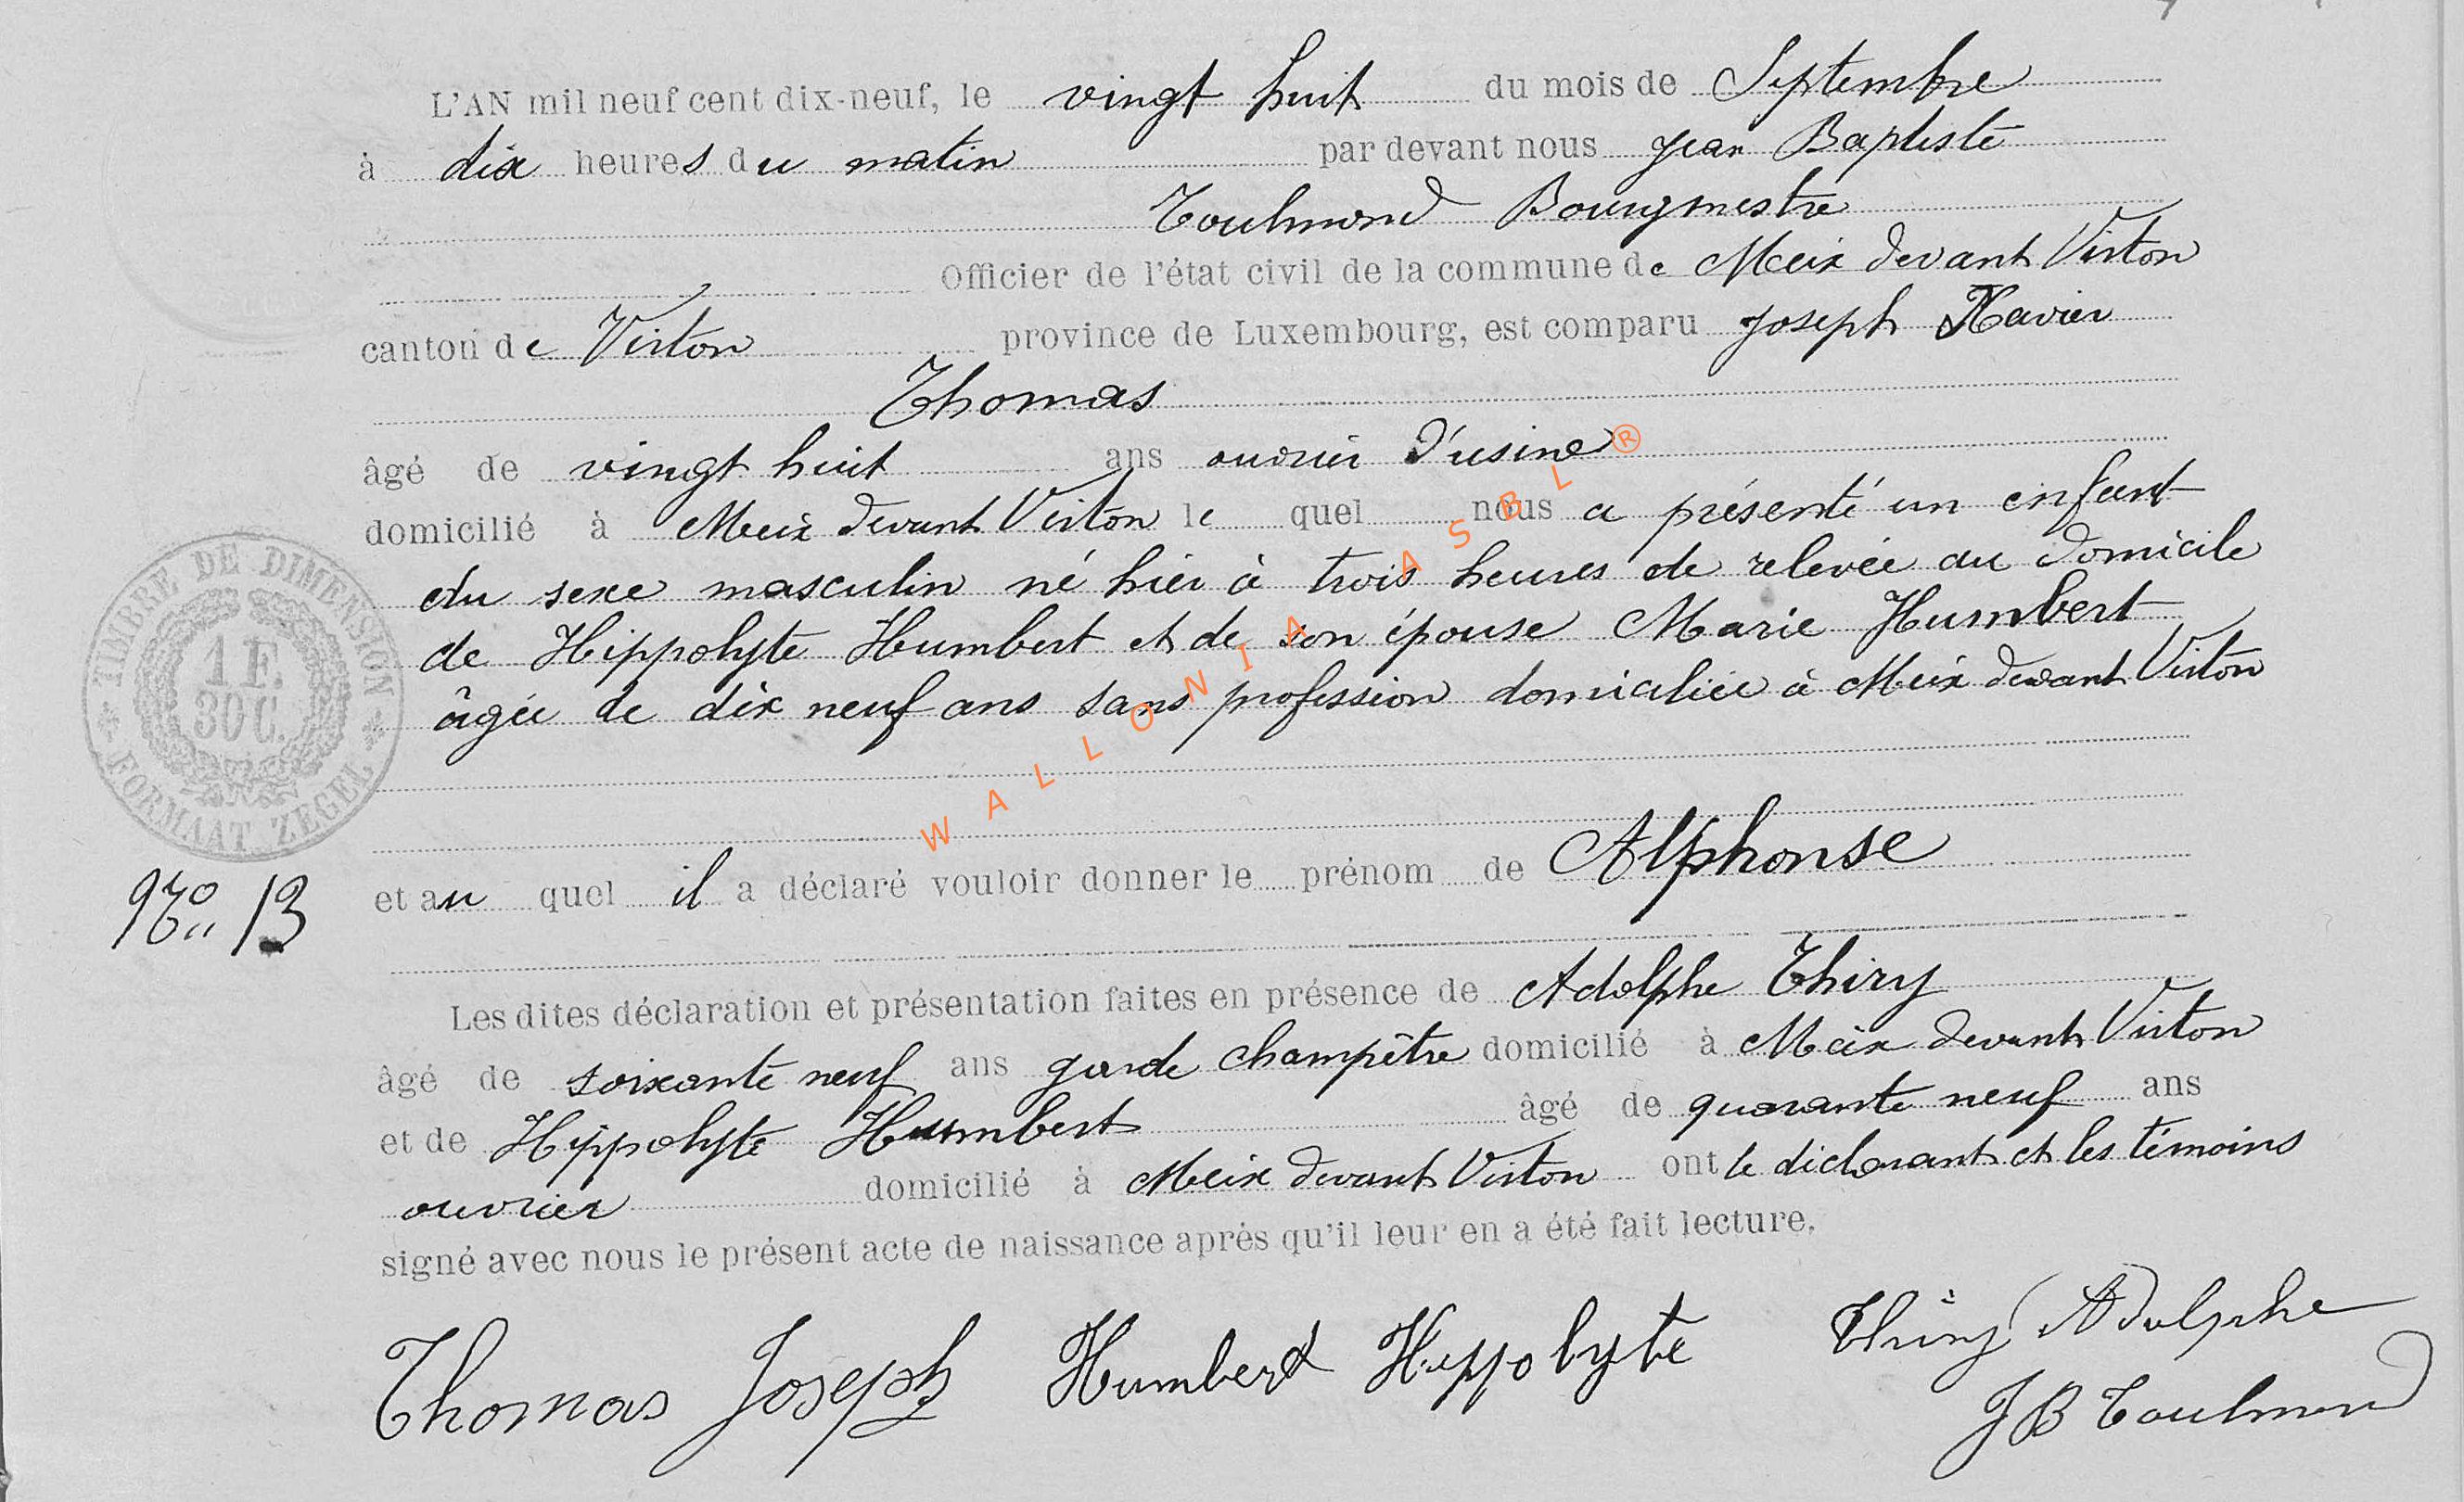 L'AN mil neuf cent dix-neuf, le vingt huit du mois de Septembre
à dix heures du matin par devant nous Jean Baptiste
Toulmond Bourgmestre
Officier de l'état civil de la commune de Meix devant Virton
canton de Virton province de Luxembourg, est comparu Joseph Xavier
Thomas
âgé de vingt huit ans ouvrier d'usine
domicilié à Meix devant Virton le quel nous a présenté un enfant
du sexe masculin né hier à trois heures de relevée au domicile
de Hippolyte Humbert et de son épouse Marie Humbert
âgée de dix neuf ans sans profession domiciliée à Meix devant Virton
WALLONIA ASBL ®
TIMBRE DE DIMENSION
1 F.
30 C.
FORMAAT ZEGEL
No 13
et au quel il a déclaré vouloir donner le prénom de Alphonse
Les dites déclaration et présentation faites en présence de Adolphe Thiry
âgé de soixante neuf ans garde champêtre domicilié à Meix devant Virton
et de Hippolyte Humbert âgé de quarante neuf ans
ouvrier domicilié à Meix devant Virton ont le déclarant et les témoins
signé avec nous le présent acte de naissance après qu'il leur en a été fait lecture.
Thomas Joseph Humbert Hippolyte Thiry Adolphe
J B Toulmond